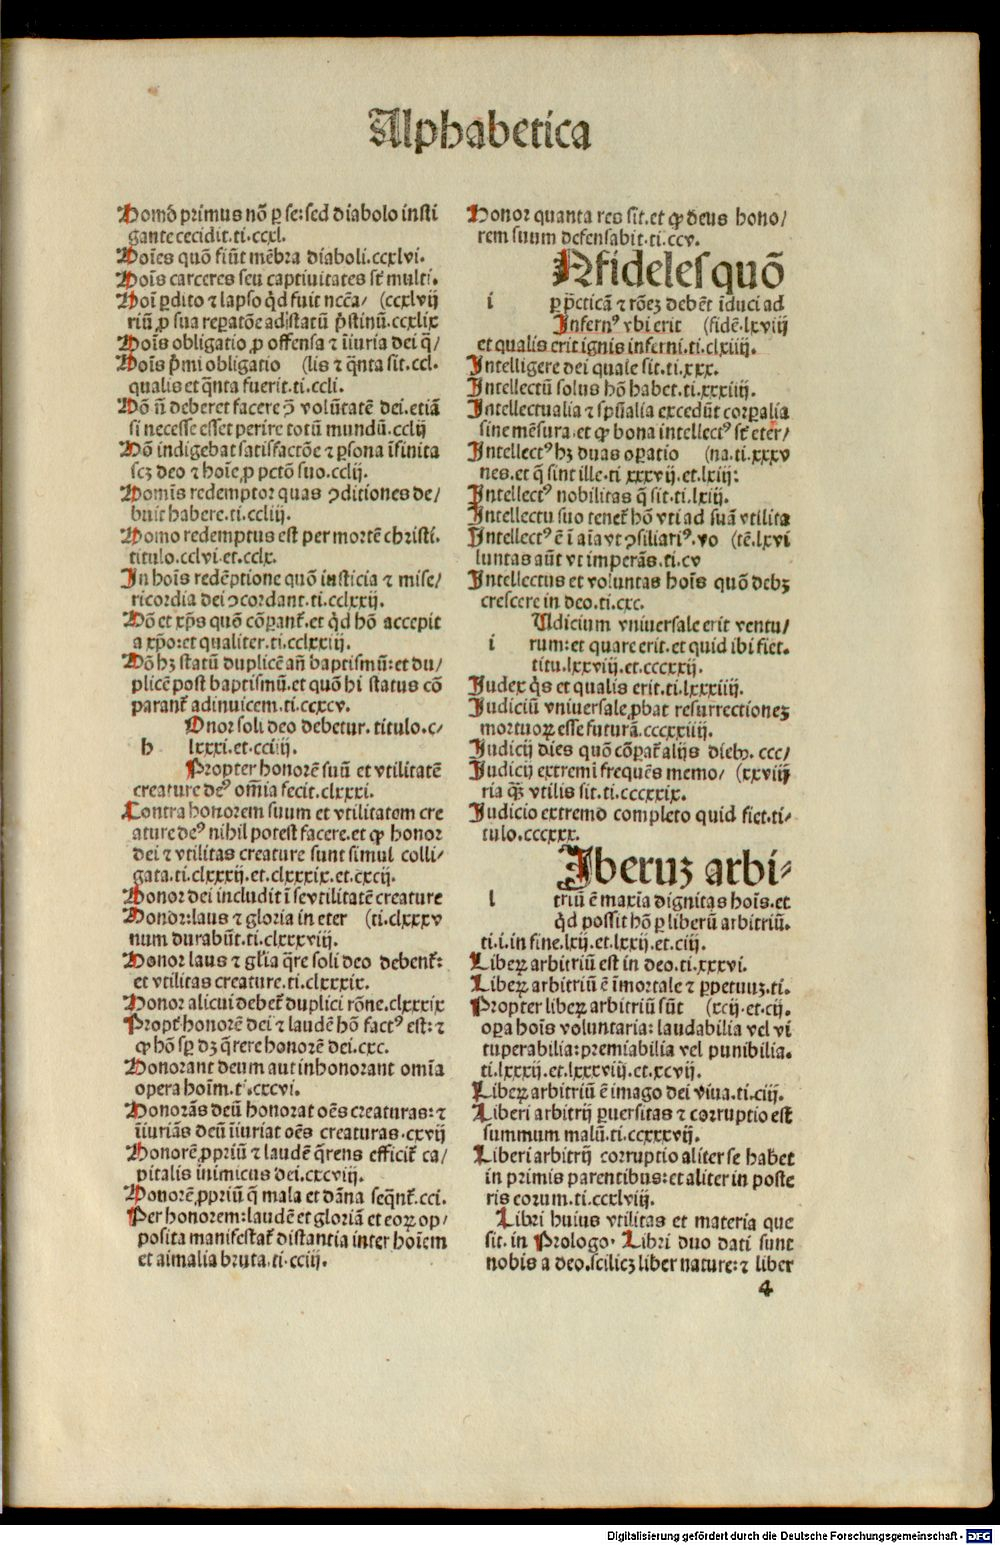 Alphabetica
Homo primus nō ꝑ se: sed diabolo insti
gante cecidit.ti.ccxl.
Hoīes quō fiūt mēbra diaboli.ccxlvi.
Hoīs carceres seu captiuitates sūt multi.
Hoī ꝑdito ⁊ lapso qd fuit ncēa/ (ccxlvij
riū ꝓ sua reꝑatōe ad statū pstinū.ccxlix
Hoīs obligatio ꝓ offensa ⁊ īiuria dei q/
Hoīs pmi obligatio (lis ⁊ qnta sit.ccl.
qualis et qnta fuerit.ti.ccli.
Hō nō deberet facere ꝯ volūtatē dei.etiā
si necesse esset perire totū mundū.cclij
Hō indigebat satisfactōe ⁊ ꝑsona īfinita
scꝫ deo ⁊ hoīe ꝓ pctō suo.cclij.
Homīs redemptor quas ꝯditiones de/
buit habere.ti.ccliij.
Homo redemptus est per mortē christi.
titulo.cclvi.et.cclx.
In hoīs redēptione quō iusticia ⁊ mise/
ricordia dei ꝯcordant.ti.cclxxij.
Hō et xps quō cōꝑant̄.et qd hō accepit
a xpo:et qualiter.ti.cclxxiij.
Hō hꝫ statū duplicē añ baptismū:et du/
plicē post baptismū.et quō hi status cō
parant̄ adinuicem.ti.ccxcv.
Onor soli deo debetur.titulo.c/
h lxxxi.et.cciiij.
Propter honorē suū et vtilitatē
creature de⁹ omīa fecit.clxxxi.
Contra honorem suum et vtilitatem cre
ature de⁹ nihil potest facere.et ꝙ honor
dei ⁊ vtilitas creature sunt simul colli/
gata.ti.clxxxij.et.clxxxix.et.cxcij.
Honor dei includit ī se vtilitatē creature
Honor:laus ⁊ gloria in eter (ti.clxxxv
num durabūt.ti.clxxxviij.
Honor laus ⁊ glīa qre soli deo debent̄:
et vtilitas creature.ti.clxxxix.
Honor alicui debet̄ duplici rōne.clxxxix
Propt̄ honorē dei ⁊ laudē hō fact⁹ est:⁊
ꝙ hō sꝑ dꝫ qrere honorē dei.cxc.
Honorant deum aut inhonorant omīa
opera hoīm.ti.cxcvi.
Honorās deū honorat oēs creaturas:⁊
īiuriās deū īiuriat oēs creaturas.cxvij
Honorē ꝓpriū ⁊ laudē qrens efficit̄ ca/
pitalis inimicus dei.cxcviij.
Honorē ꝓpriū q mala et dāna seqnt̄.cci.
Per honorem:laudē et gloriā et eoꝝ op/
posita manifestat̄ distantia inter hoīem
et aīmalia bruta.ti.cciij.
Honor quanta res sit.et ꝙ deus hono/
rem suum defensabit.ti.ccv.
Nfideles quō
i ꝑ pcticā ⁊ rōeꝫ debēt īduci ad
Infern⁹ vbi erit (fidē.lxviij
et qualis erit ignis inferni.ti.clxiiij.
Intelligere dei quale sit.ti.xxx.
Intellectū solus hō habet.ti.xxxiiij.
Intellectualia ⁊ spūalia excedūt corꝑalia
sine mēsura.et ꝙ bona intellect⁹ sūt eter/
Intellect⁹ hꝫ duas oꝑatio (na.ti.xxxv
nes.et q sint ille.ti xxxvij.et.lxiij:
Intellect⁹ nobilitas q sit.ti.lxiij.
Intellectu suo tenet̄ hō vti ad suā vtilita
Intellect⁹ ē ī aīa vt ꝯsiliari⁹.vo (tē.lxvi
luntas aūt vt imperās.ti.cv
Intellectus et voluntas hoīs quō debꝫ
crescere in deo.ti.cxc.
Udicium vniuersale erit ventu/
i rum:et quare erit.et quid ibi fiet.
titu.lxxviij.et.cccxxij.
Judex qs et qualis erit.ti.lxxxiiij.
Judiciū vniuersale ꝓbat resurrectioneꝫ
mortuoꝝ esse futurā.cccxxiiij.
Judicij dies quō cōꝑat̄ alijs dieb⁹. ccc/
Judicij extremi frequēs memo/ (xxviij
ria q̄ vtilis sit.ti.cccxxix.
Judicio extremo completo quid fiet.ti/
tulo.cccxxx.
Iberuꝫ arbi/
l triū ē maxīa dignitas hoīs.et
qd possit hō ꝑ liberū arbitriū.
ti.i.in fine.lxij.et.lxxij.et.ciij.
Libeꝝ arbitriū est in deo.ti.xxxvi.
Libeꝝ arbitriū ē īmortale ⁊ ꝑpetuuꝫ.ti.
Propter libeꝝ arbitriū sūt (xcij.et.cij.
oꝑa hoīs voluntaria:laudabilia vel vi
tuperabilia:premiabilia vel punibilia.
ti.lxxxij.et.lxxxviij.et.xcvij.
Libeꝝ arbitriū ē imago dei viua.ti.ciij.
Liberi arbitrij ꝑuersitas ⁊ corruptio est
summum malū.ti.ccxxxvij.
Liberi arbitrij corruptio aliter se habet
in primis parentibus:et aliter in poste
ris eorum.ti.ccxlviij.
Libri huius vtilitas et materia que
sit.in Prologo. Libri duo dati sunt
nobis a deo.scilicꝫ liber nature:⁊ liber
4
Digitalisierung gefördert durch die Deutsche Forschungsgemeinschaft - DFG